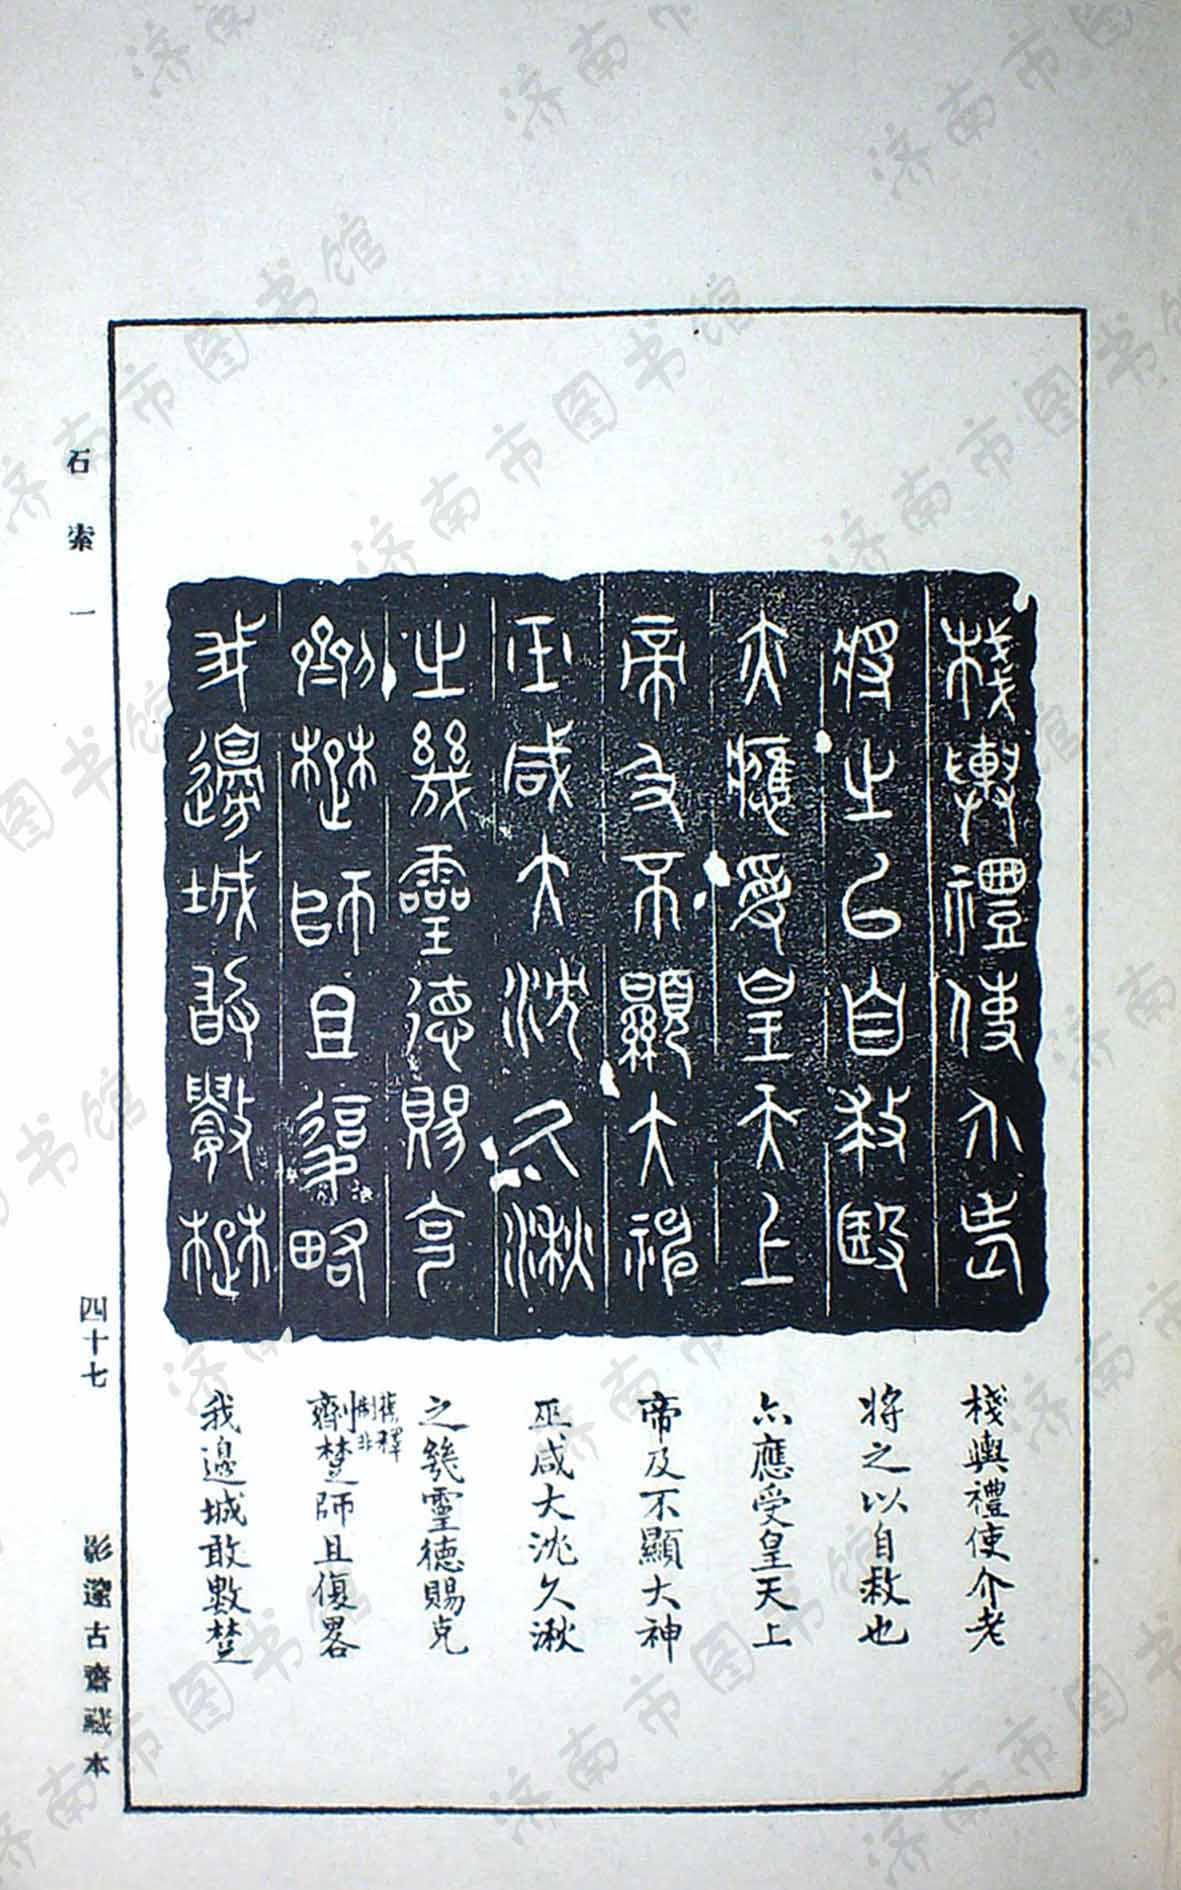 棧輿禮使介老
將之以自救也
亦應受皇天上
帝及不顯大神
巫咸大沈久湫
之幾靈德賜克
劑楚師且復畧
舊釋制非
我邊城敢數楚
石索一
四十七
影邃古齋藏本
济南市图书馆